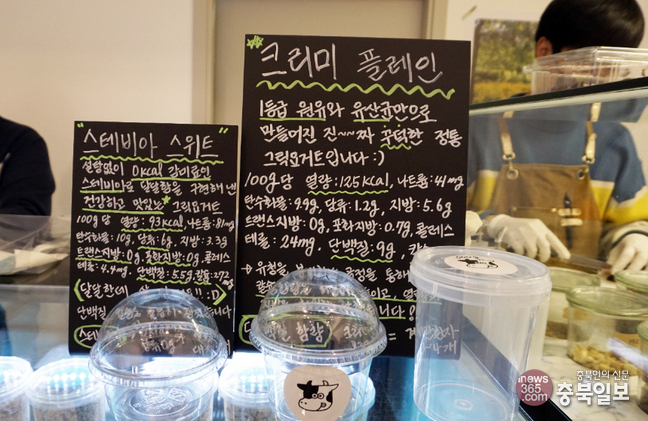 "스테비아 스위트"
설탕없이 0kcal 감미료인
스테비아로 달달함을 구현해 낸
건강하고 맛있는 그릭요거트
100g당 열량: 93kcal, 나트륨: 81mg
탄수화물: 10g, 당류: 6g, 지방: 3.3g
트랜스지방: 0g, 포화지방: 0g, 콜레스
테롤: 4.4mg, 단백질: 5.5g, 칼슘: 272
mg
달달한데
단백질
스테
크리미 플레인
1등급 원유와 유산균만으로
만들어진 진~~짜 꾸덕한 정통
그릭요거트입니다 :)
100g당 열량: 125kcal, 나트륨: 41mg
탄수화물: 9.9g, 당류: 1.2g, 지방: 5.6g
트랜스지방: 0g, 포화지방: 0.7g, 콜레스
테롤: 24mg, 단백질: 9g,
→ 유청을
공정을 통해
단백질 함량
충북인의 신문
inews365.com
충북일보